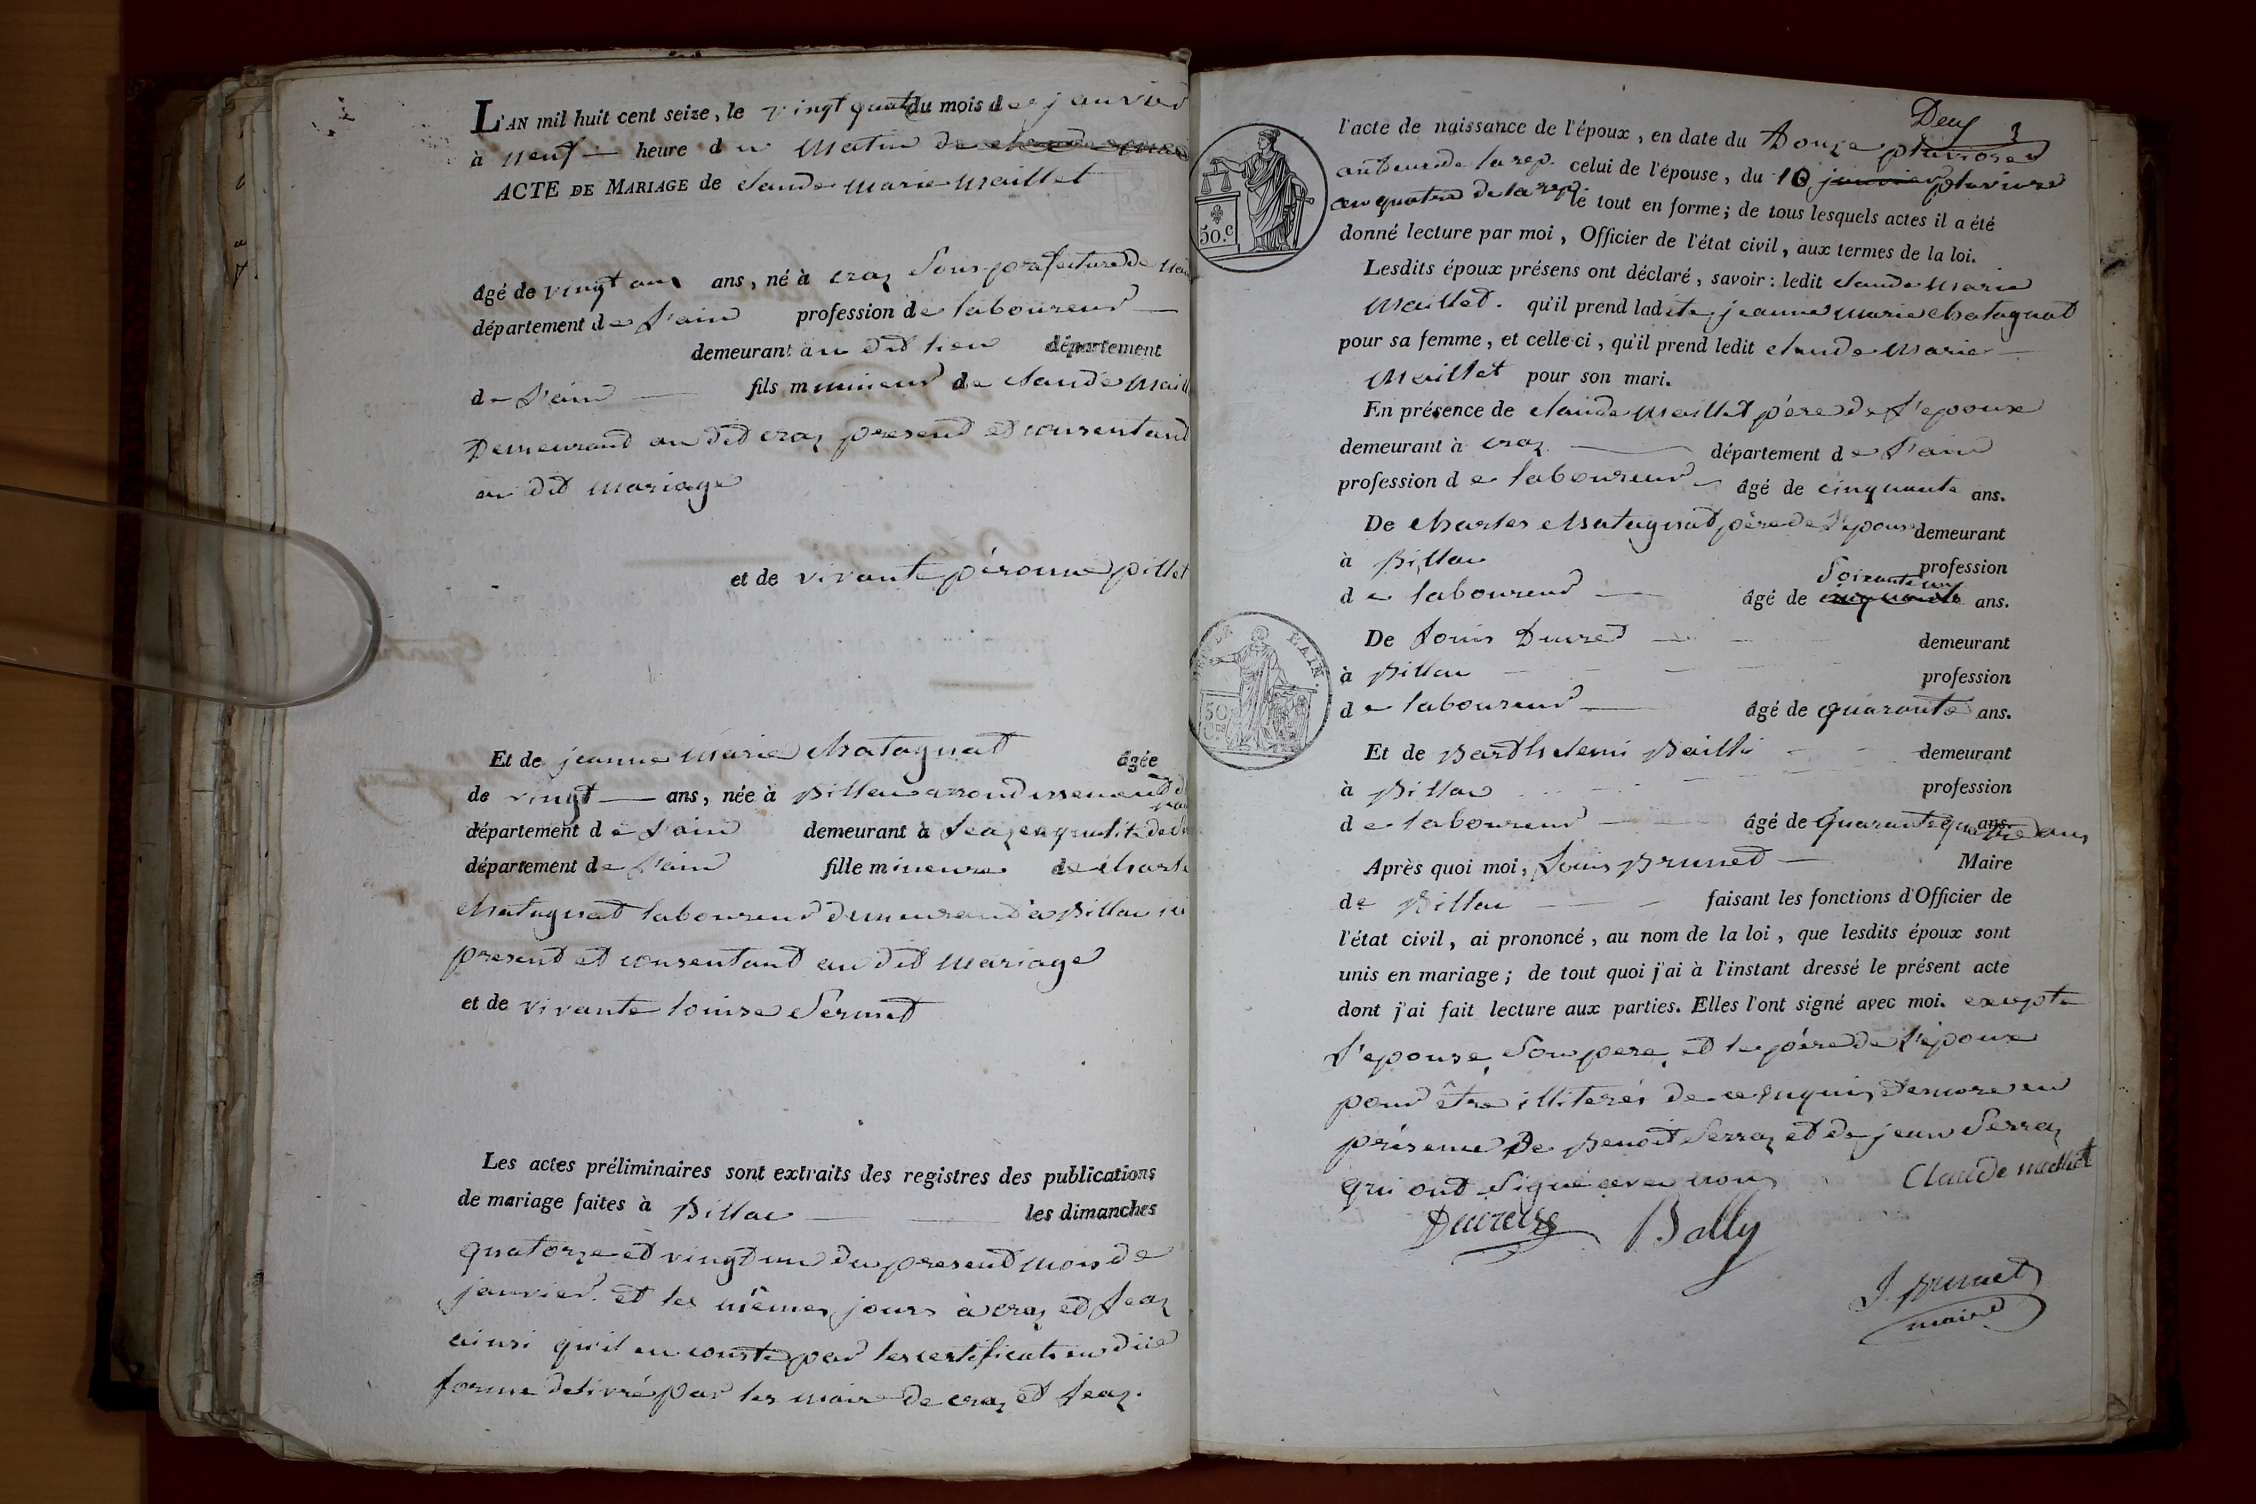 L'AN mil huit cent seize, le vingt quat du mois de janvier
à neuf heure du matin
ACTE DE MARIAGE de claude marie maillet
âgé de vingt ans ans, né à craz Sous prefecture de
département de l'ain profession de laboureur
demeurant au dit lieu département
de l'ain fils mineur de claude maill
Demeurant au dit craz present et consentant
au dit mariage
et de vivante péronne pillet
Et de jeanne marie chatagnat âgée
de vingt ans, née à Billac arrondissement d
département de l'ain demeurant à Seaz en qualité de
département de l'ain fille mineure de charle
chatagnat laboureur demeurant à Billac ici
present et consentant au dit mariage
et de vivante louise Sermet
Les actes préliminaires sont extraits des registres des publications
de mariage faites à Billac les dimanches
quatorze et vingt un du present mois de
janvier et les mêmes jours à craz et Seaz
ainsi qu'il en conste par les certificats en due
forme delivré par les maire de craz et Seaz.
Deux 3
l'acte de naissance de l'époux, en date du Douze pluviose
an de la rep. celui de l'épouse, du 10 janvier pluviose
an quatre de la rep le tout en forme; de tous lesquels actes il a été
donné lecture par moi, Officier de l'état civil, aux termes de la loi.
Lesdits époux présens ont déclaré, savoir: ledit claude marie
maillet. qu'il prend ladite jeanne marie chatagnat
pour sa femme, et celle-ci, qu'il prend ledit claude marie
maillet pour son mari.
En présence de claude maillet père de l'epoux
demeurant à craz département de l'ain
profession de laboureur âgé de cinquante ans.
De charles chatagnat père de l'epouse demeurant
à Billac profession
de laboureur âgé de cinquante Soixante un ans.
De Louis Ducret demeurant
à Billac profession
de laboureur âgé de quarante ans.
Et de Barthelemi Bailli demeurant
à Billac profession
de laboureur âgé de Quarante quatre ans ans.
Après quoi moi, Louis Brunet Maire
de Billac faisant les fonctions d'Officier de
l'état civil, ai prononcé, au nom de la loi, que lesdits époux sont
unis en mariage; de tout quoi j'ai à l'instant dressé le présent acte
dont j'ai fait lecture aux parties. Elles l'ont signé avec moi. excepté
l'epouse, Son pere, et le père de l'époux
pour être illiterés de ce enquis encore en
présence De Benoit Serraz et de jean Serraz
qui ont Signé avec nous
Claude maillet
Ducret
Bally
J. Brunet
maire
50.c